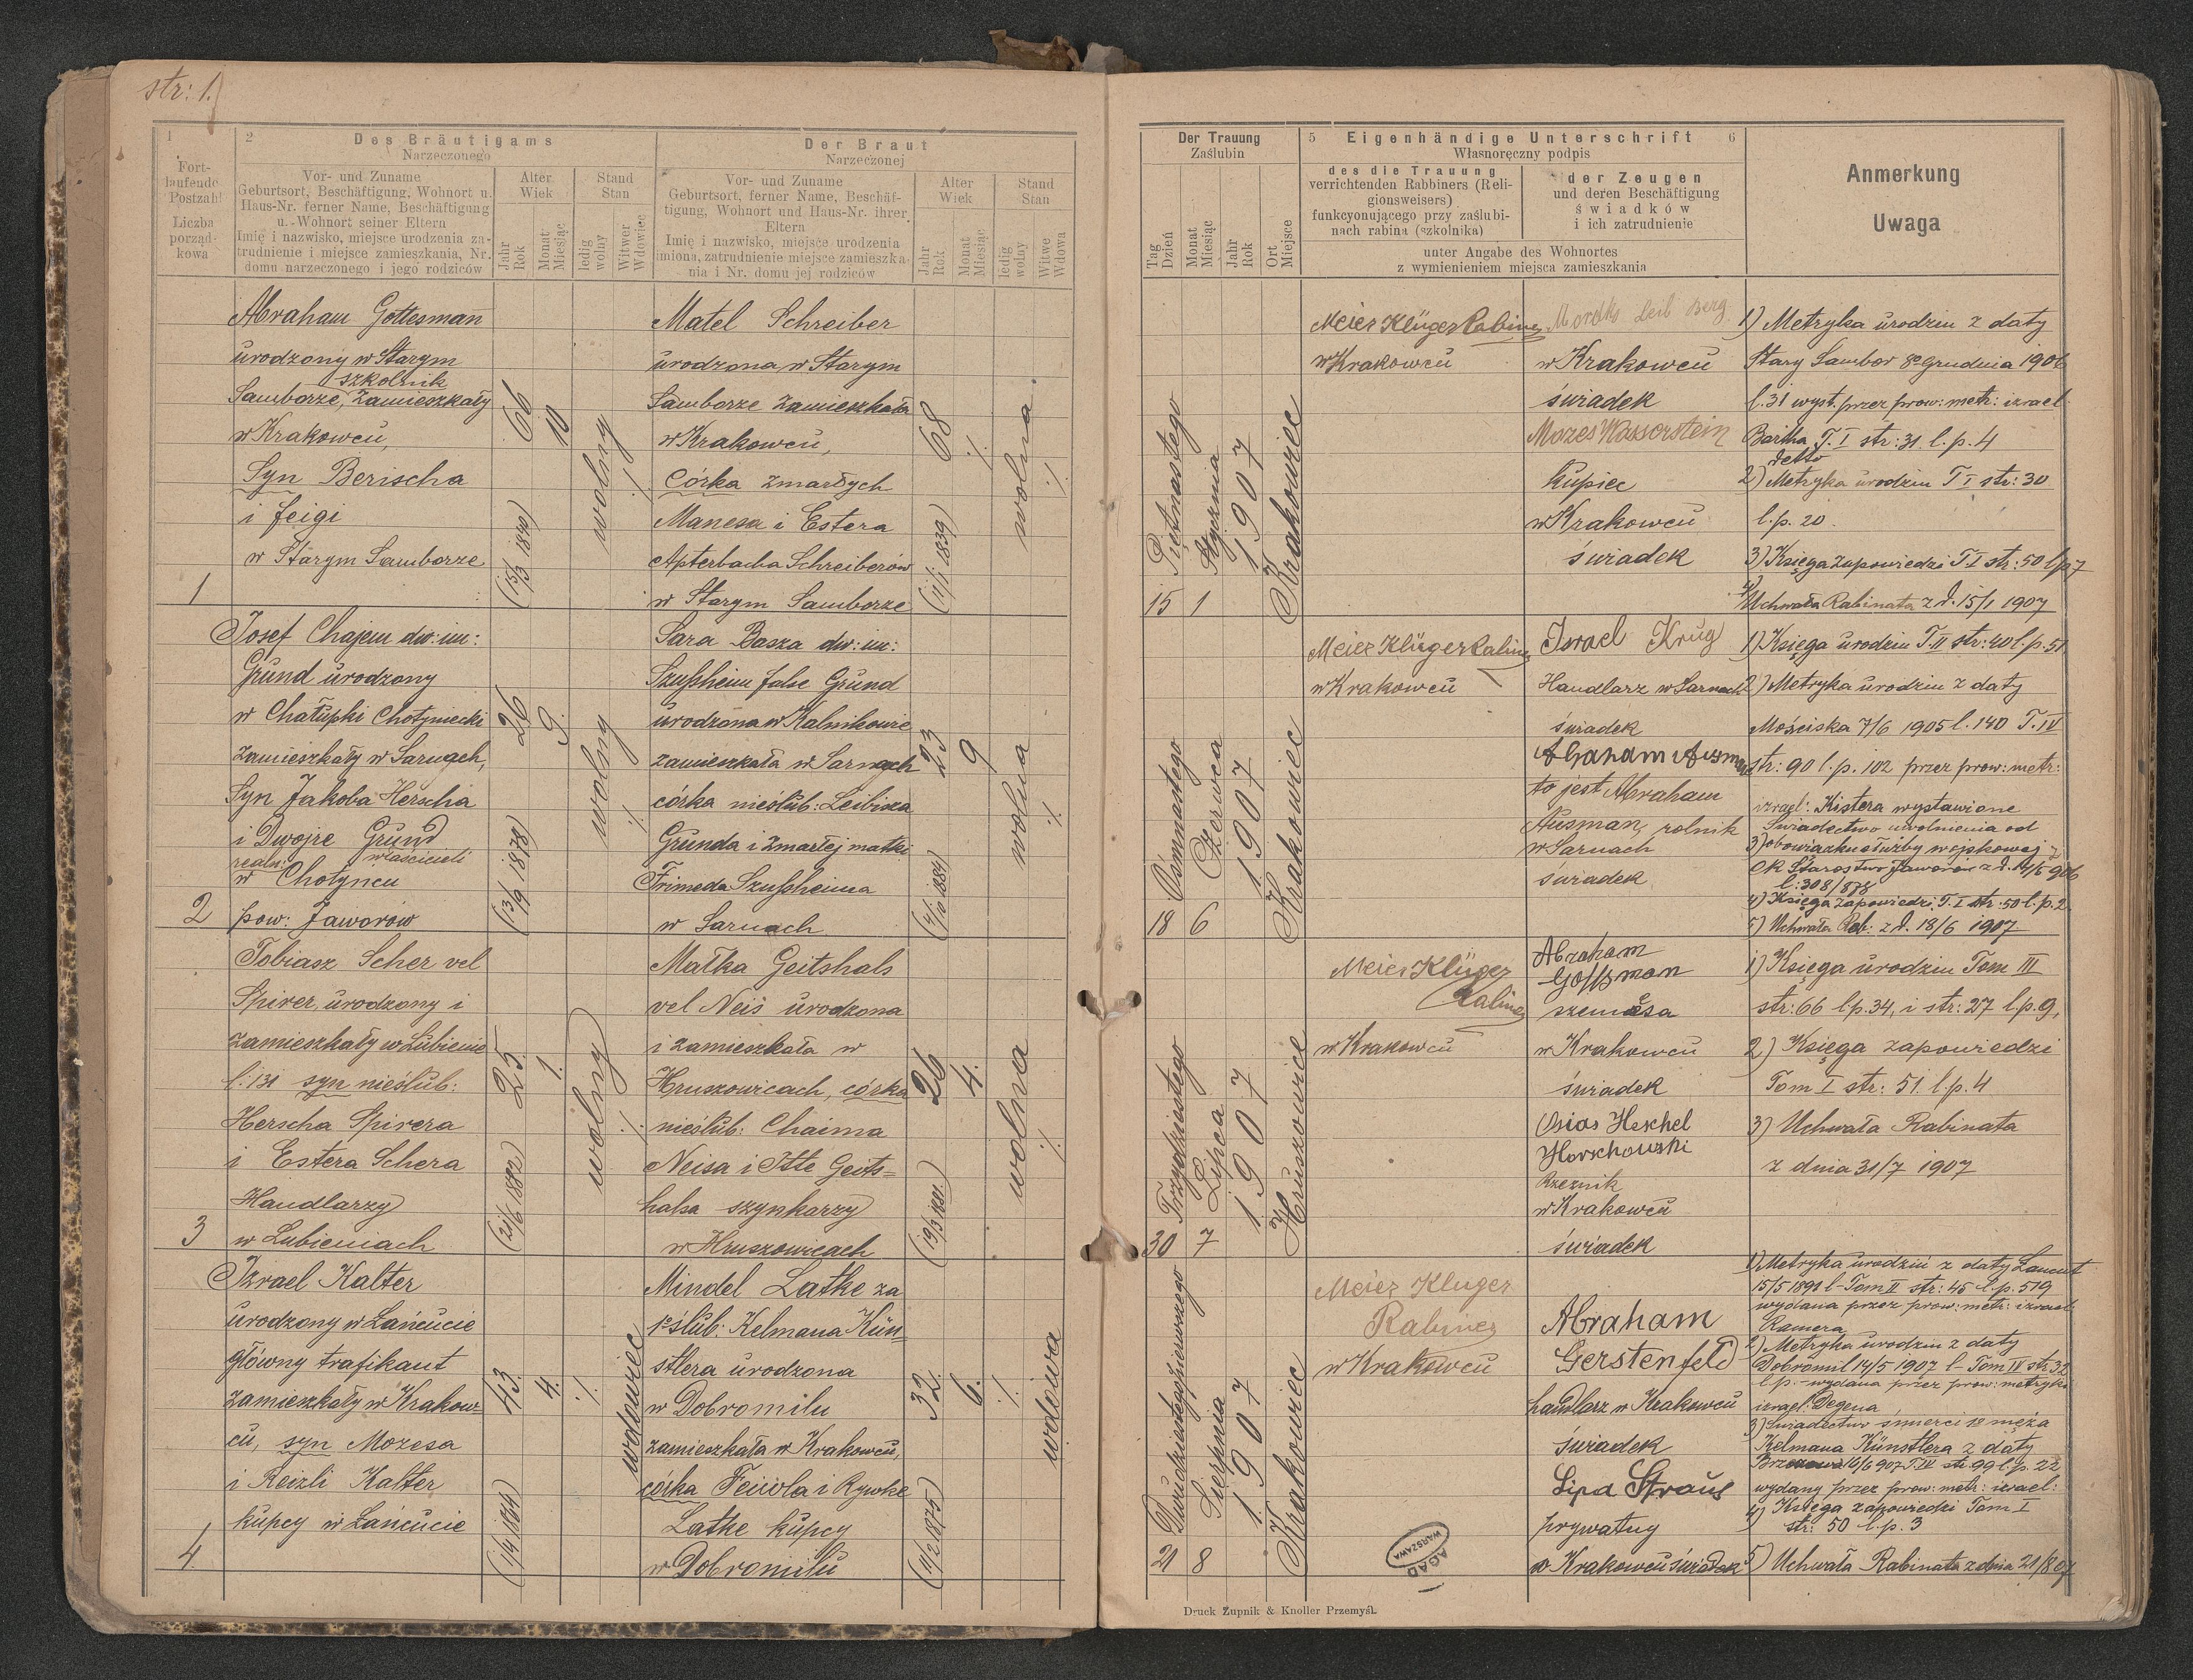 str: 1.
1
2
Des Bräutigams
Narzeczonego
Der Braut
Narzeczonej
Fort-
laufende
Postzahl
Liczba
porząd-
kowa
Vor- und Zuname
Geburtsort, Beschäftigung, Wohnort u.
Haus-Nr. ferner Name, Beschäftigung
u. Wohnort seiner Eltern
Imię i nazwisko, miejsce urodzenia za-
trudnienie i miejsce zamieszkania, Nr.
domu narzeczonego i jego rodziców
Alter
Wiek
Jahr
Rok
Monat
Miesiąc
Stand
Stan
ledig
wolny
Witwer
Wdowiec
Vor- und Zuname
Geburtsort, ferner Name, Beschäf-
tigung, Wohnort und Haus-Nr. ihrer
Eltern
Imię i nazwisko, miejsce urodzenia
imiona, zatrudnienie miejsce zamieszka-
nia i Nr. domu jej rodziców
Alter
Wiek
Jahr
Rok
Monat
Miesiąc
Stand
Stan
ledig
wolny
Witwe
Wdowa
Abraham Gottesman
urodzony w Starym
szkolnik
Samborze, zamieszkały
w Krakowcu,
Syn Berischa
i Feigi
w Starym Samborze
1
66
10
(15/3 1840)
wolny
./.
Matel Schreiber
urodzona w Starym
Samborze zamieszkała
w Krakowcu,
Córka zmarłych
Manesa i Estera
Apterbacha Schreiberów
w Starym Samborze
68
./.
(11/1 1839)
wolna
./.
Josef Chajem dw: im:
Grund urodzony
w Chałupki Chotyniecki
zamieszkały w Sarnach,
Syn Jakoba Herscha
i Dwojre Grund
realn: właścicieli
w Chotyncu
2
pow: Jaworów
26
9.
(13/9 1878)
wolny
./.
Sara Basza dw: im:
Szußheim false Grund
urodzona w Kalnikowie
zamieszkała w Sarnach
córka nieślub: Leibisza
Grunda i zmarłej matki
Frimeda Szußheima
w Sarnach
23
9
wolna
./.
Tobiasz Scher vel
Spirer, urodzony i
zamieszkały w Lubienie
l: 131 syn nieślub:
Herscha Spirera
i Estera Schera
Handlarzy
3
w Lubieniach
25
1.
(21/6 1882)
wolny
./.
Małka Geitshals
vel Neis urodzona
i zamieszkała w
Hruszowicach, córka
nieślub: Chaima
Neisa i Itte Geits=
halsa szynkarzy
w Hruszowicach
26
4.
(19/3 1881)
wolna
./.
Izrael Kalter
urodzony w Łańcucie
główny trafikant
zamieszkały w Krakow=
cu, syn Mozesa
i Reizli Kalter
kupcy w Łańcucie
4
43.
4.
./.
wdowiec
Mindel Latke za
1º ślub: Kelmana Kün=
stlera urodzona
w Dobromilu
zamieszkała w Krakowcu,
córka Feiwla i Rywke
Latke kupcy
w Dobromilu
32.
6.
(11/2 1875)
./.
wdowa
Der Trauung
Zaślubin
Tag
Dzień
Monat
Miesiąc
Jahr
Rok
Ort
Miejsce
5
Eigenhändige Unterschrift
6
Własnoręczny podpis
des die Trauung
verrichtenden Rabbiners (Reli-
gionsweisers)
funkcyonującego przy zaślubi-
nach rabina (szkolnika)
der Zeugen
und deren Beschäftigung
świadków
i ich zatrudnienie
unter Angabe des Wohnortes
z wymienieniem miejsca zamieszkania
Anmerkung
Uwaga
Piętnastego
15
Stycznia
1
1907
Krakowiec
Meier Klüger Rabiner
w Krakowcu
Leib Berg
w Krakowcu
świadek
Mozes Wasserstein
kupiec
w Krakowcu
świadek
1) Metryka urodzin z daty
Stary Sambor 8º Grudnia 1906
l. 31 wyst. przez prow: metr: izrael:
T. I str: 31 l. p. 4
detto
2) Metryka urodzin T I str: 30
l. p. 20.
3) Księga zapowiedzi T I str: 50 lp 7
4) Uchwała Rabinata z d. 15/1 1907
Ośmnastego
18
Czerwca
6
1907
Krakowiec
Meier Klüger Rabiner
w Krakowcu
Israel Krug
Handlarz w Sarnach
świadek
to jest Abraham
Ausman, rolnik
w Sarnach
świadek
1) Księga urodzin T. II str: 40 l. p. 51
2) Metryka urodzin z daty
Mościska 7/6 1905 l. 140 T. IV
str: 90 l. p. 102 przez prow: metr:
izrael: Kistera wystawione
Świadectwo uwolnienia od
3) obowiązku służby wojskowej z
CK Starostwo Jaworów
l: 308/878
4) Księga zapowiedzi T. I str: 50 l. p. 2
5) Uchwała Rab: z d. 18/6 1907
Trzydziestego
30
Lipca
7
1907
Hruszowice
Meier Klüger
Rabiner
w Krakowcu
Abraham
Goßsman
w Krakowcu
świadek
Osias Heschel
Horschowski
Rzeznik
w Krakowcu
świadek
1) Księga urodzin Tom III
str: 66 l. p. 34, i str: 27 l. p. 9,
2) Księga zapowiedzi
Tom I str: 51 l. p. 4
3) Uchwała Rabinata
z dnia 31/7 1907
Dwudziestegopierwszego
21
Sierpnia
8
1907
Krakowiec
Meier Kluger
Rabiner
w Krakowcu
Abraham
Gerstenfeld
handlarz w Krakowcu
świadek
Lipa Straus
prywatny
w Krakowcu świadek
1) Metryka urodzin z daty Łancut
15/5 1891 l - Tom II str: 45 l. p. 519
wydana przez prow: metr: izrael:
Kamera
2) Metryka urodzin z daty
Dobromil 14/5 1907 l - Tom IV str: 32
l p. - wydana przez prow: metryki
izrael: Degena
3) Świadectwo śmierci 1º męża
Kelmana Künstlera z daty
16/6 907 T. IV str. 99 l. p. 22
wydany przez prow: metr: izrael:
4) Księga zapowiedzi Tom I
str: 50 l. p. 3
5) Uchwała Rabinata z dnia 21/8 07
AGAD
WARSZAWA
Druck Żupnik & Knoller Przemyśl.